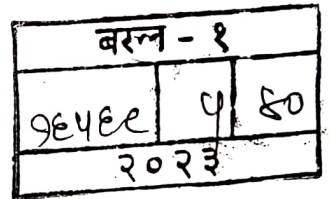 बरल - १
१६५६९ ५ ४०
२०२३